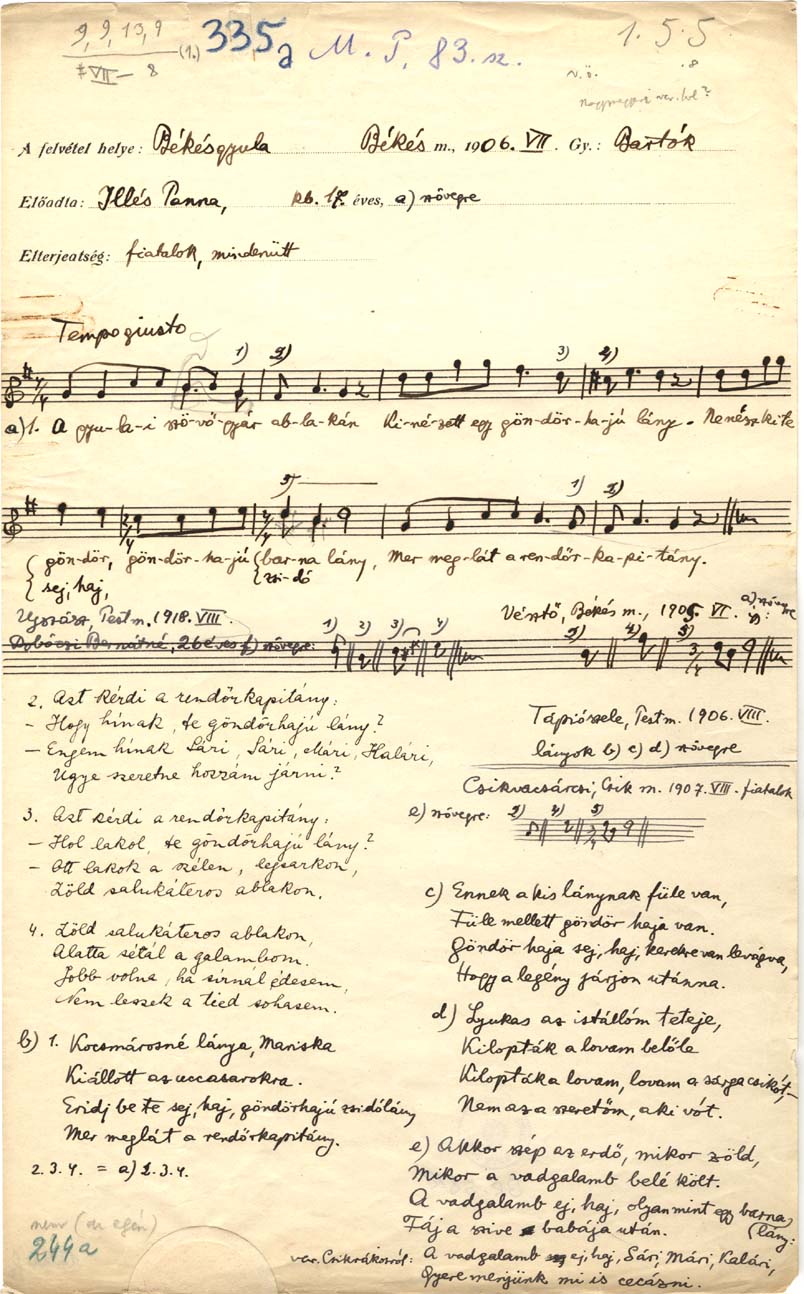 9, 9, 13, 9 (1.) 335a M. P. 83. sz. 1. 5. 5
VII — 8 v. ö. .8
A felvétel helye: Békésgyula Békés m., 1906. VII. Gy.: Bartók
Előadta: Illés Panna, kb. 17. éves, a) szövegre
Elterjeatség: fiatalok, mindenütt
Tempo giusto
1) 2) 3) 4)
a) 1. A gyu-la-i szö-vő-gyár ab-la-kán Ki-né-zett egy gön-dör-ha-jú lány. Ne nézz ki te
5) 1) 2)
gön-dör, gön-dör-ha-jú bar-na lány, Mer meg-lát a ren-dőr-ka-pi-tány.
sej, haj, zsi-dó
Ujszász, Pest m. 1918. VIII. Vésztő, Békés m., 1906. VI. a) szövegre
Dobóczi Bernátné, 26 éves f) szövegre: 1) 2) 3) 4) 2) 4) 5)
2. Azt kérdi a rendőrkapitány:
– Hogy hínak, te göndörhajú lány?
– Engem hínak Sári, Sári, Mári, Kalári,
Ugye szeretne hozzám járni?
3. Azt kérdi a rendőrkapitány:
– Hol lakol, te göndörhajú lány?
– Ott lakok a szélen, legsarkon,
Zöld salukáteros ablakon.
4. Zöld salukáteros ablakon,
Alatta sétál a galambom.
Jobb volna, ha sírnál édesem,
Nem leszek a tied sohasem.
b) 1. Kocsmárosné lánya, Mariska
Kiállott az uccasarokra.
Eridj be te sej, haj, göndörhajú zsidólány
Mer meglát a rendőrkapitány.
2. 3. 4. = a) 2. 3. 4.
244a
Tápiószele, Pest m. 1906. VIII.
lányok b) c) d) szövegre
Csikvacsárcsi, Csik m. 1907. VIII. fiatalok
e) szövegre: 2) 4) 5)
c) Ennek a kis lánynak füle van,
Füle mellett göndör haja van.
Göndör haja sej, haj, kerekre van levágva,
Hogy a legény járjon utánna.
d) Lyukas az istállóm teteje,
Kilopták a lovam belőle
Kilopták a lovam, lovam a sárga csikót,
Nem az a szeretőm, aki vót.
e) Akkor szép az erdő, mikor zöld,
Mikor a vadgalamb belé költ.
A vadgalamb ej, haj, olyan mint egy barna
Fáj a szive babája után. (lány:
var. Csikrákosról: A vadgalamb ej, haj, Sári, Mári, Kalári,
Gyere menjünk mi is cecázni.